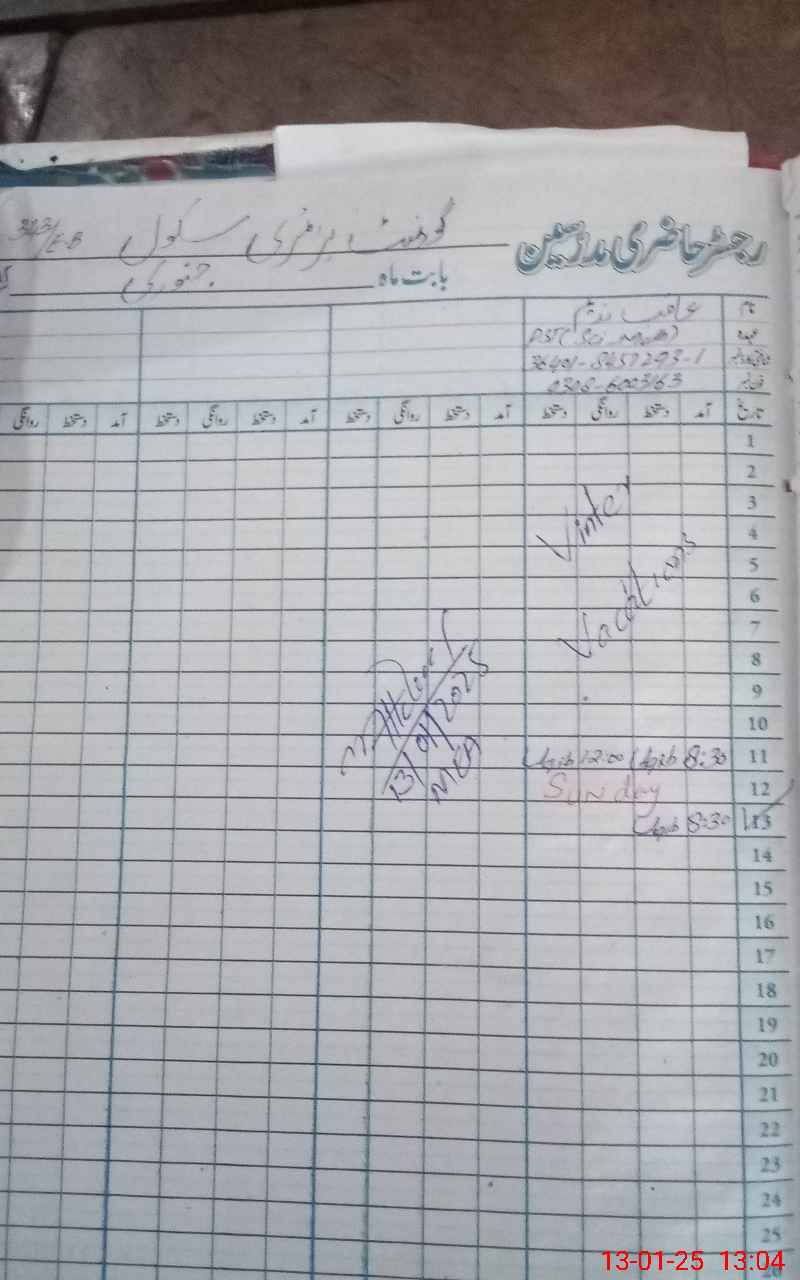 رجسٹر حاضری مدرسین
گورنمنٹ پرائمری سکول 343/E-B
بابت ماہ جنوری
نام عاقب ندیم
عہدہ PST (Sci Math)
36401-8457293-1
فون نمبر 0305-6003163
تاریخ آمد دستخط روانگی دستخط آمد دستخط روانگی دستخط آمد دستخط روانگی دستخط آمد دستخط روانگی
1
2
3
4
5
6
7
8
9
10
Vinter
Vacations
11 8:30 Aqib 12:00 Aqib
12 Sunday
13 8:30 Aqib
13/01/2025
MEA
14
15
16
17
18
19
20
21
22
23
24
25
26
13-01-25 13:04